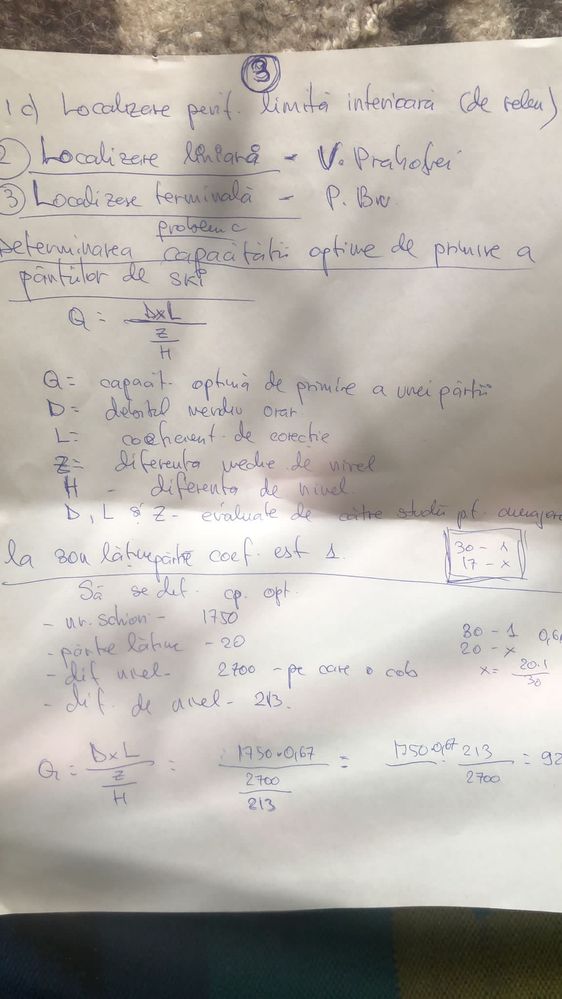 3
1 c) Localizere perif. limită interioară (de releu)
2 Localizere liniară - V. Prahovei
3 Localizere terminală - P. Bv.
problema
Determinarea capacității optime de primire a
pârtiilor de ski
Q = DxL
Z
H
Q = capacit. optimă de primire a unei pârtii
D = debitul mediu orar
L = coeficient de corecție
Z = diferența medie de nivel
H - diferența de nivel
D, L și Z - evaluate de către studii pt. amenajare
la 30m lățime pârtie coef. est 1.
30 - 1
17 - x
Să se det. cp. opt.
- nr. schiori - 1750
- pârtie lățime - 20
- dif nivel - 2700 - pe care o cob
- dif. de nivel - 213.
30 - 1 0,6
20 - x
x = 20·1
30
Q = DxL = 1750·0,67 = 1750·0,67 · 213 = 92
Z 2700 2700
H 213